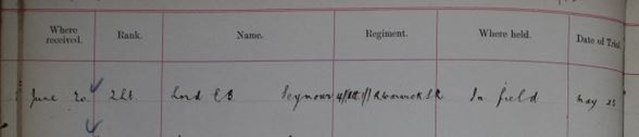 Where received. Rank. Name. Regiment. Where held. Date of Trial
June 20 2Lt Lord CB Seymour R Warwick R In field May 23